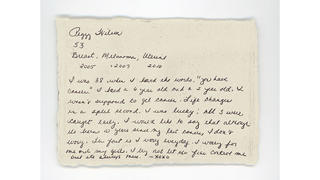 Peggy
53
Breast, Melanoma, Uterus
2005 . 2007 2010
I was 38 when I heard the words, "you have
cancer." I had a 4 year old and a 2 year old. I
wasn't supposed to get cancer. Life changes
in a split second. I was lucky; all 3 were
caught early. I would like to say that although
its been years since my last cancer, I don't
worry. In fact is I worry everyday. I worry for
me and my girls. I try not let the fear control me
but its always there. - xoxo